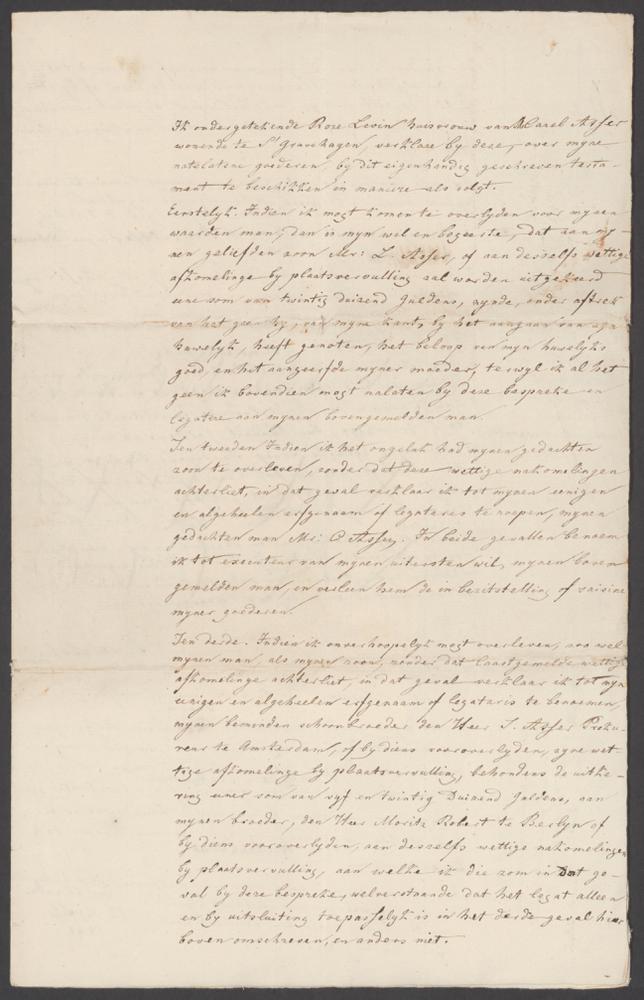 Ik ondergetekende Rose Levin huisvrouw van Mr Carel Asser
wonende te S'Gravehagen, verklare by deze, over myne
natelatene goederen, by dit eigenhandig geschreven testa-
ment te beschikken in maniere als volgt.
Eerstelyk. Indien ik mogt komen te overlyden voor mynen
waarden man, dan is myn wil en begeerte, dat aan my-
nen geliefden zoon Mr: L. Asser, of aan deszelfs wettige
afkomelinge by plaatsvervulling zal worden uitgekeerd
eene som van twintig duizend Guldens, zynde, onder aftrek
van het geen hy, van myne kant, by het aangaan van zyn
huwelyk, heeft genoten, het beloop van myn huwelyks
goed, en het aangeerfde myner moeder, terwyl ik al het
geen ik bovendien mogt nalaten by deze bespreke en
legatere aan mynen bovengemelden man.
Ten tweeden Indien ik het ongeluk had mynen gedachten
zoon te overleven, zonder dat deze wettige nakomelingen
achterliet, in dat geval verklaar ik tot mynen eenigen
en algeheelen erfgenaam of legataris te roepen, mynen
gedachten man Mr: C Asser. In beide gevallen benoem
ik tot executeur van mynen uitersten wil, mynen boven
gemelden man, en verleen hem de in bezitstelling of saisine
myner goederen.
Ten derde. Indien ik onverhoopelyk mogt overleven, zoo wel
mynen man, als mynen zoon, zonder dat laastgemelde wettige
afkomelinge achterliet, in dat geval verklaar ik tot myn
eenigen en algeheelen erfgenaam of legataris te benoemen,
mynen beminden schoonbroeder den Heer T. Asser Proku-
reur te Amsterdam, of by diens vooroverlyden, zyne wet-
tige afkomelinge by plaatsvervulling, behoudens de uitke-
ring eener som van vyf en twintig Duizend Guldens, aan
mynen broeder, den Heer Moritz Robert te Berlyn of
by diens vooroverlyden, aan deszelfs wettige nakomelingen
by plaatsvervulling, aan welke ik die zom in Dat ge-
val by deze bespreke, welverstaande dat het legat alleen
en by uitsluiting toepasselyk is in het derde geval hier
boven omschreven, en anders niet.